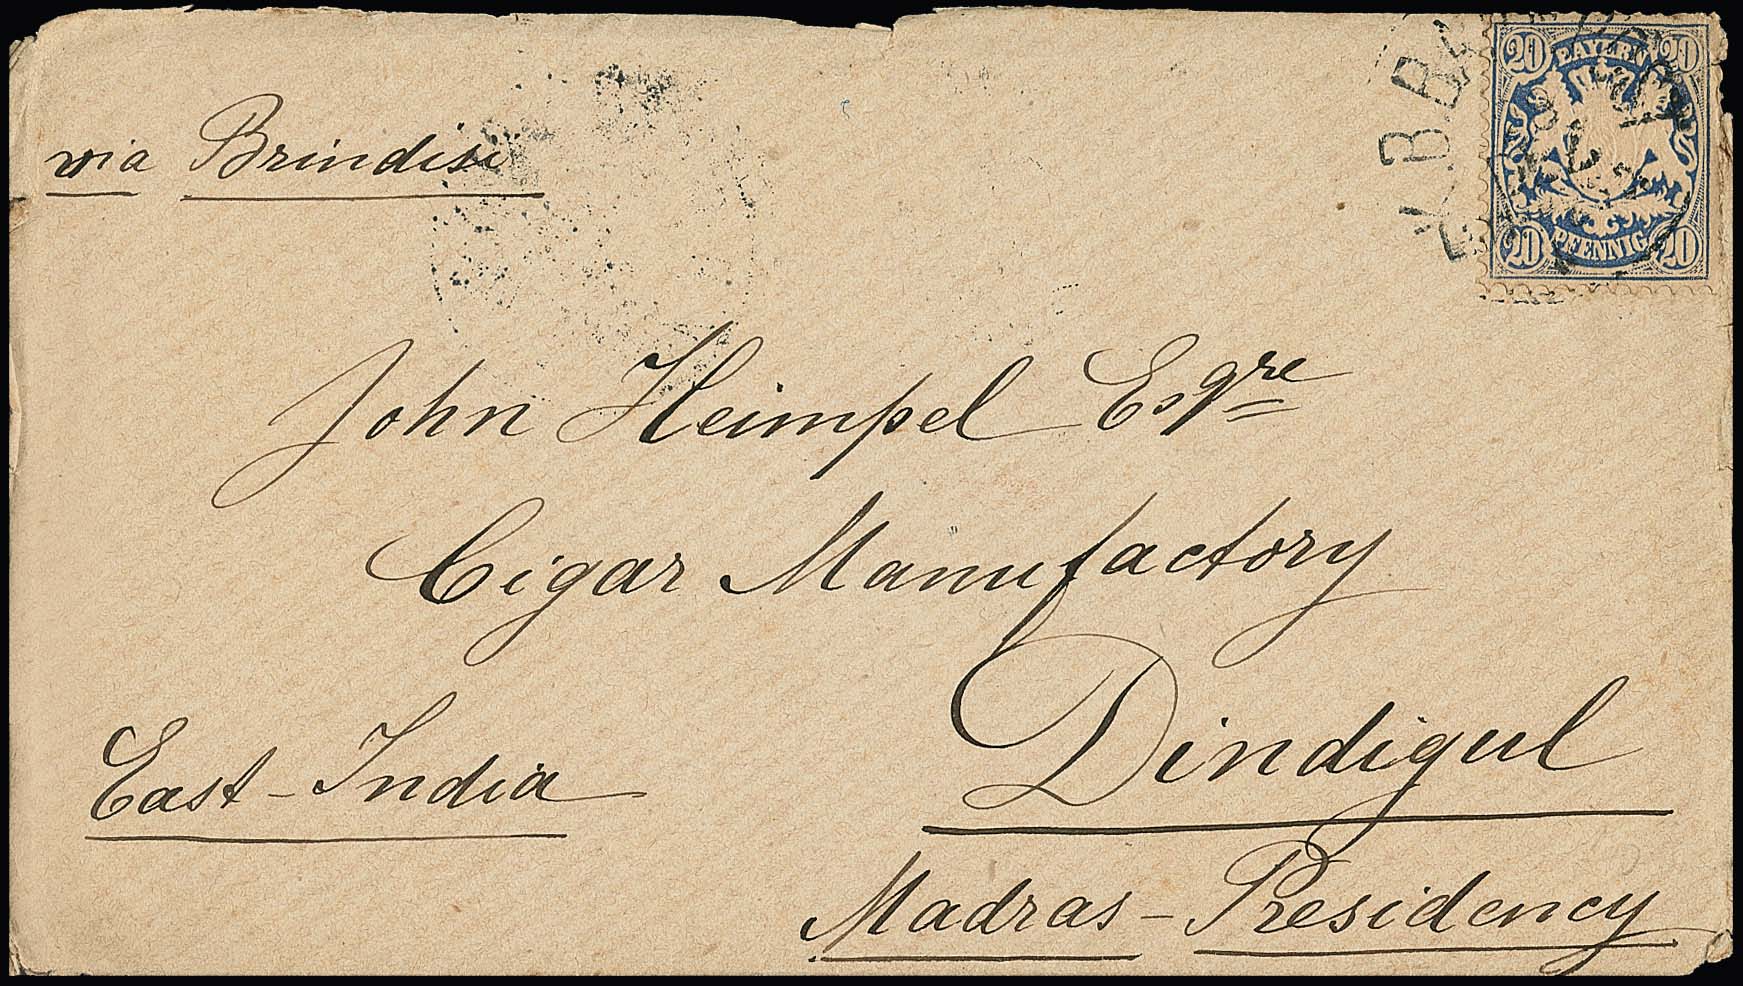 via Brindisi
20 BAYERN 20
20 PFENNIG 20
John Heimpel Esqre
Cigar Manufactory
Dindigul
East-India
Madras-Presidency